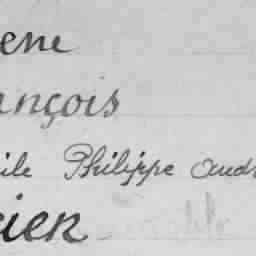 ene
nçois
ile Philippe and
cien